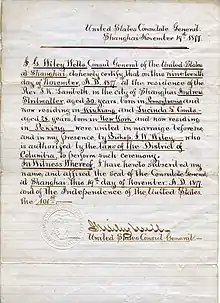 United States Consulate General.
Shanghai November 19th 1877.
I G. Wiley Wells Consul General of the United States
at Shanghai, do hereby certify that on this nineteenth
day of November A.D. 1877. at the residence of the
Rev. J. W. Lambuth in the city of Shanghai Andrew
aged 30 years, born in Pennsylvania and
now residing in and Lucinda L. Coombs
aged 28 years, born in New York and now residing
in Peking were united in marriage before me
and in my presence by Bishop I. W. Wiley who
is authorized by the laws of the District of
Columbia, to perform such ceremony.
In Witness Thereof, I have hereto subscribed my
name, and affixed the seal of the Consulate General,
at Shanghai this 19th day of November A.D. 1877
and of the Independence of the United States
the
United States Consul General.